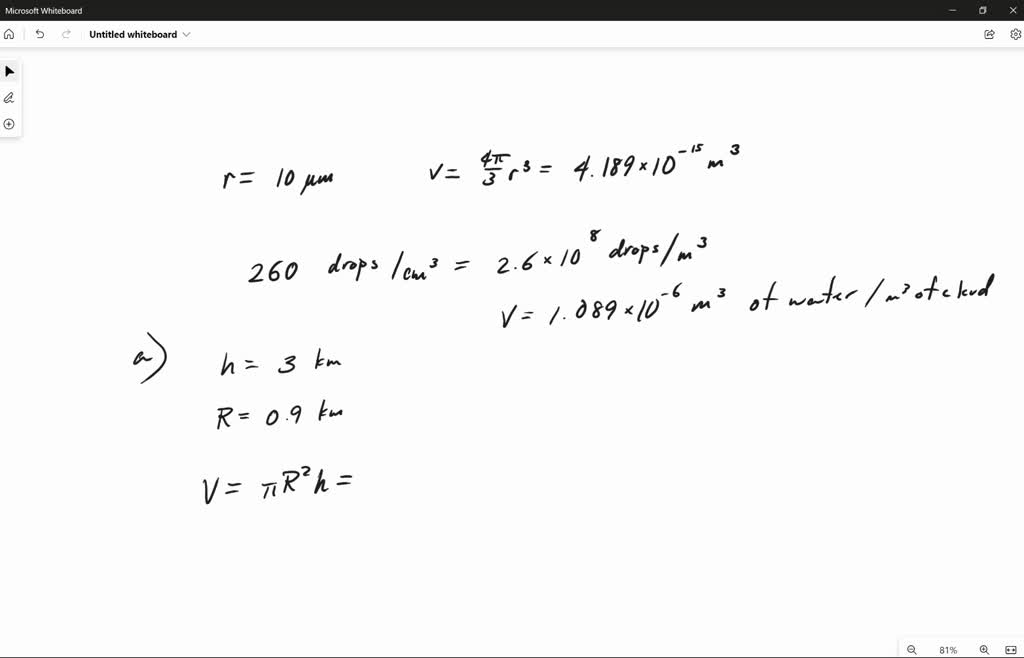 Microsoft Whiteboard
Untitled whiteboard
r = 10 μm   v = 4π/3 r³ = 4.189 × 10⁻¹⁵ m³
260 drops/cm³ = 2.6 × 10⁸ drops/m³
V = 1.089 × 10⁻⁶ m³ of water/m³ of cloud
a) h = 3 km
R = 0.9 km
V = πR²h =
81%